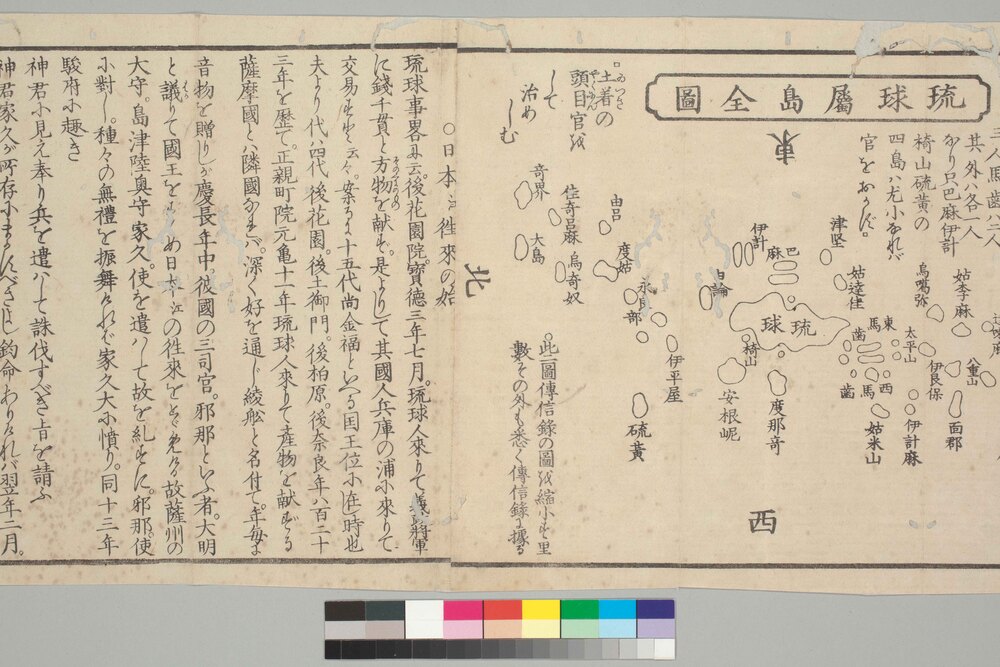 三人馬齒八二人
其外ハ各一人
なり只巴麻伊計
椅山硫黄の
四島ハ尤小なれバ
官をおかず
琉球屬島全圖
東
西
北
土着の
頭目官を
して
治め
しむ
津堅
姑達佳
伊計
巴麻
琉球
椅山
安根岘
度那奇
東馬齒
西馬齒
姑米山
太平山
伊計麻
烏噶弥
姑李麻
伊良保
八重山
面郡
由呂
度姑
永良部
伊平屋
硫黄
佳奇呂麻
烏奇奴
奇界
大島
此一圖傳信錄の圖を縮小す里
數その外も悉く傳信錄に據る
○日本江徃來の始
琉球事畧に云後花園院寶德三年七月琉球人來りて義政將軍
に錢千貫と方物を献ず是よりして其國人兵庫の浦に來りて
交易すと云々案るに十五代尚金福といへる国王位に在し時也
夫より代ハ四代後花園後土御門後柏原後奈良年ハ百二十
三年を歴て正親町院元亀十一年琉球人來りて產物を献ずる
薩摩國とハ隣國なれバ深く好を通じ綾船と名付て年毎に
音物を贈りしが慶長年中彼國の三司官邪那といふ者大明
と議て國王をすゝめ日本江の徃來をとゞめける故薩州の
大守島津陸奥守家久使を遣ハして故を糺すに邪那使
に對し種々の無禮を振舞ければ家久大に憤り同十三年
駿府に趣き
神君に見え奉り兵を遣ハして誅伐すべき旨を請ふ
神君家久が所存にまかすべきよし鈞命ありけれバ翌年二月